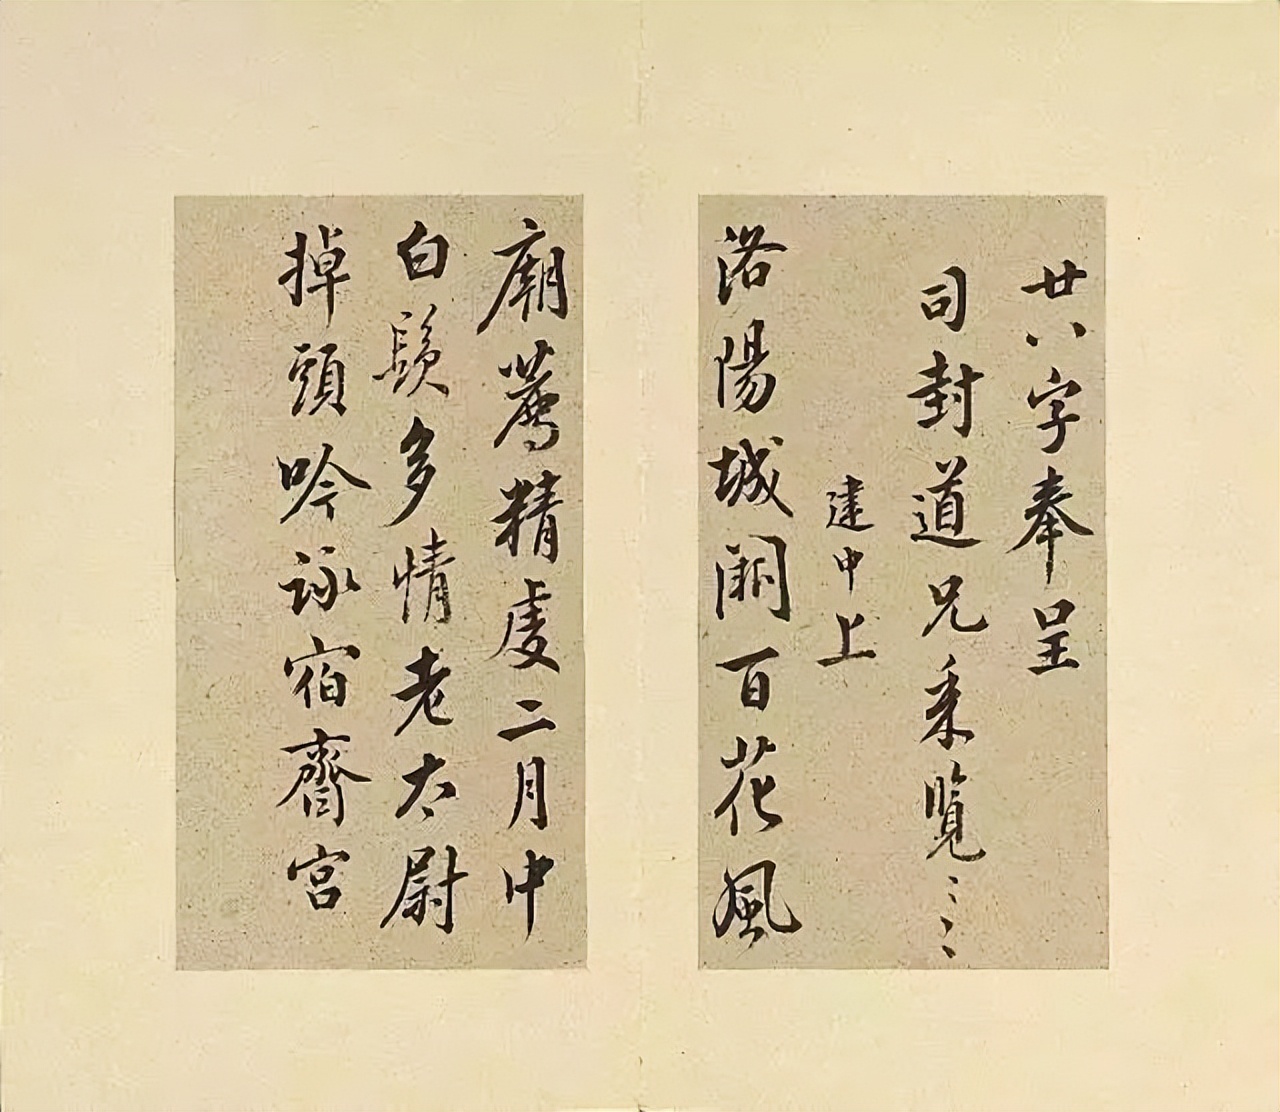 廿八字奉呈
司封道兄采覽〻〻
建中上
洛陽城闕百花風
廟薦精虔二月中
白鬚多情老太尉
掉頭吟詠宿齋宮